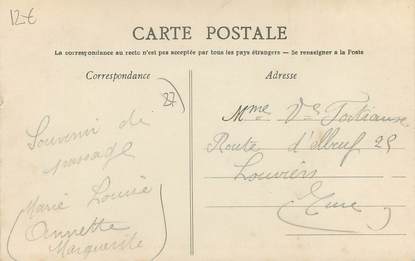 12€
CARTE POSTALE
La correspondance au recto n'est pas acceptée par tous les pays étrangers — Se renseigner à la Poste
Correspondance
Adresse
27
Souvenir de
passage
Marie Louise
Annette
Marguerite
Mme Ve
Route d'Elbeuf 25
Louviers
Eure